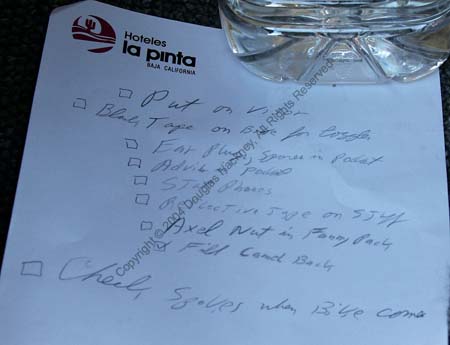 Hoteles
la pinta
BAJA, CALIFORNIA
Put on Visor
Black Tape on Bike for
Ear Plugs, Spares in Pocket
Advil in Pocket
Phones
Reflective Tape on Stuff
Axel Nut in Fanny Pack
Fill Camel Back
Check Spokes when Bike comes
Copyright © 2004 Douglas Hackney, All Rights Reserved